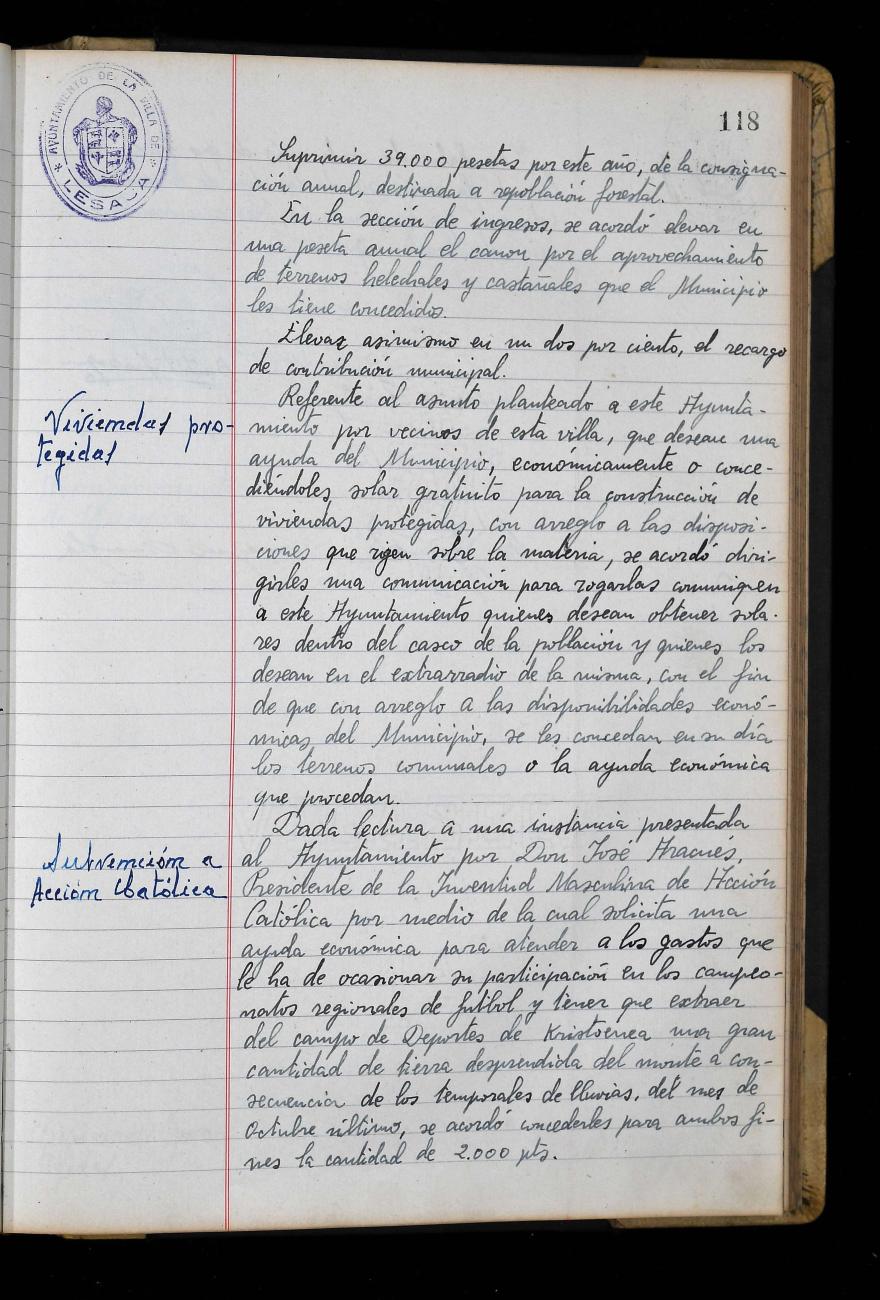 AYUNTAMIENTO DE LA VILLA DE
* LESACA *
118
Suprimir 39.000 pesetas por este año, de la consigna-
ción anual, destinada a repoblación forestal.
En la sección de ingresos, se acordó elevar en
una peseta anual el canon por el aprovechamiento
de terrenos helechales y castañales que el Municipio
les tiene concedidos.
Elevar asimismo en un dos por ciento, el recargo
de contribución municipal.
Viviendas pro-
tegidas
Referente al asunto planteado a este Ayunta-
miento por vecinos de esta villa, que desean una
ayuda del Municipio, económicamente o conce-
diéndoles solar gratuito para la construcción de
viviendas protegidas, con arreglo a las disposi-
ciones que rigen sobre la materia, se acordó diri-
girles una comunicación para rogarlas comuniquen
a este Ayuntamiento quienes desean obtener sola-
res dentro del casco de la población y quienes los
desean en el extrarradio de la misma, con el fin
de que con arreglo a las disponibilidades econó-
micas del Municipio, se les concedan en su día
los terrenos comunales o la ayuda económica
que procedan.
Subvención a
Acción Católica
Dada lectura a una instancia presentada
al Ayuntamiento por Don José Aracués,
Presidente de la Juventud Masculina de Acción
Católica por medio de la cual solicita una
ayuda económica para atender a los gastos que
le ha de ocasionar su participación en los campeo-
natos regionales de futbol y tener que extraer
del campo de Deportes de Kristoenea una gran
cantidad de tierra desprendida del monte a con-
secuencia de los temporales de lluvias, del mes de
Octubre último, se acordó concederles para ambos fi-
nes la cantidad de 2.000 pts.